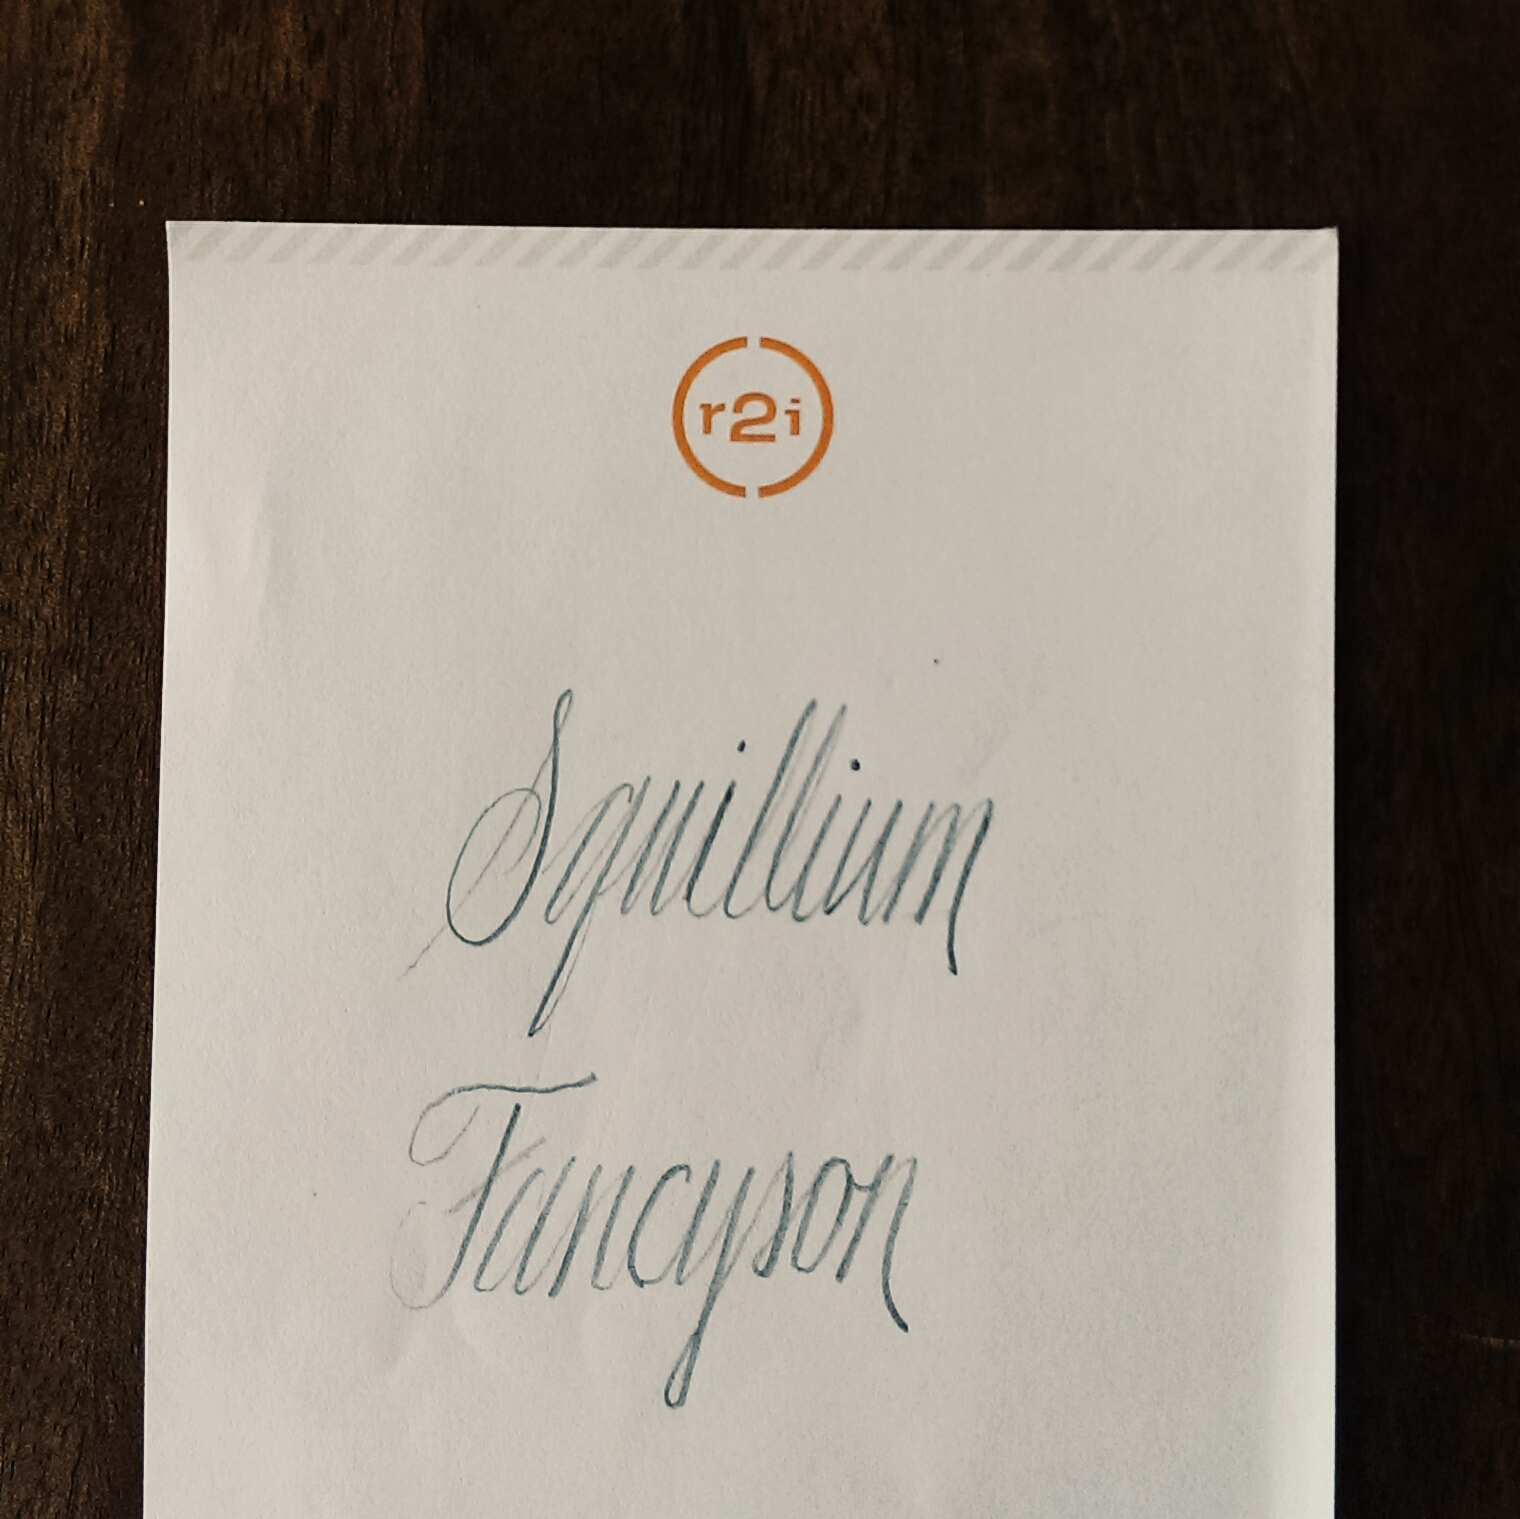 r2i
Squillium
Fancyson